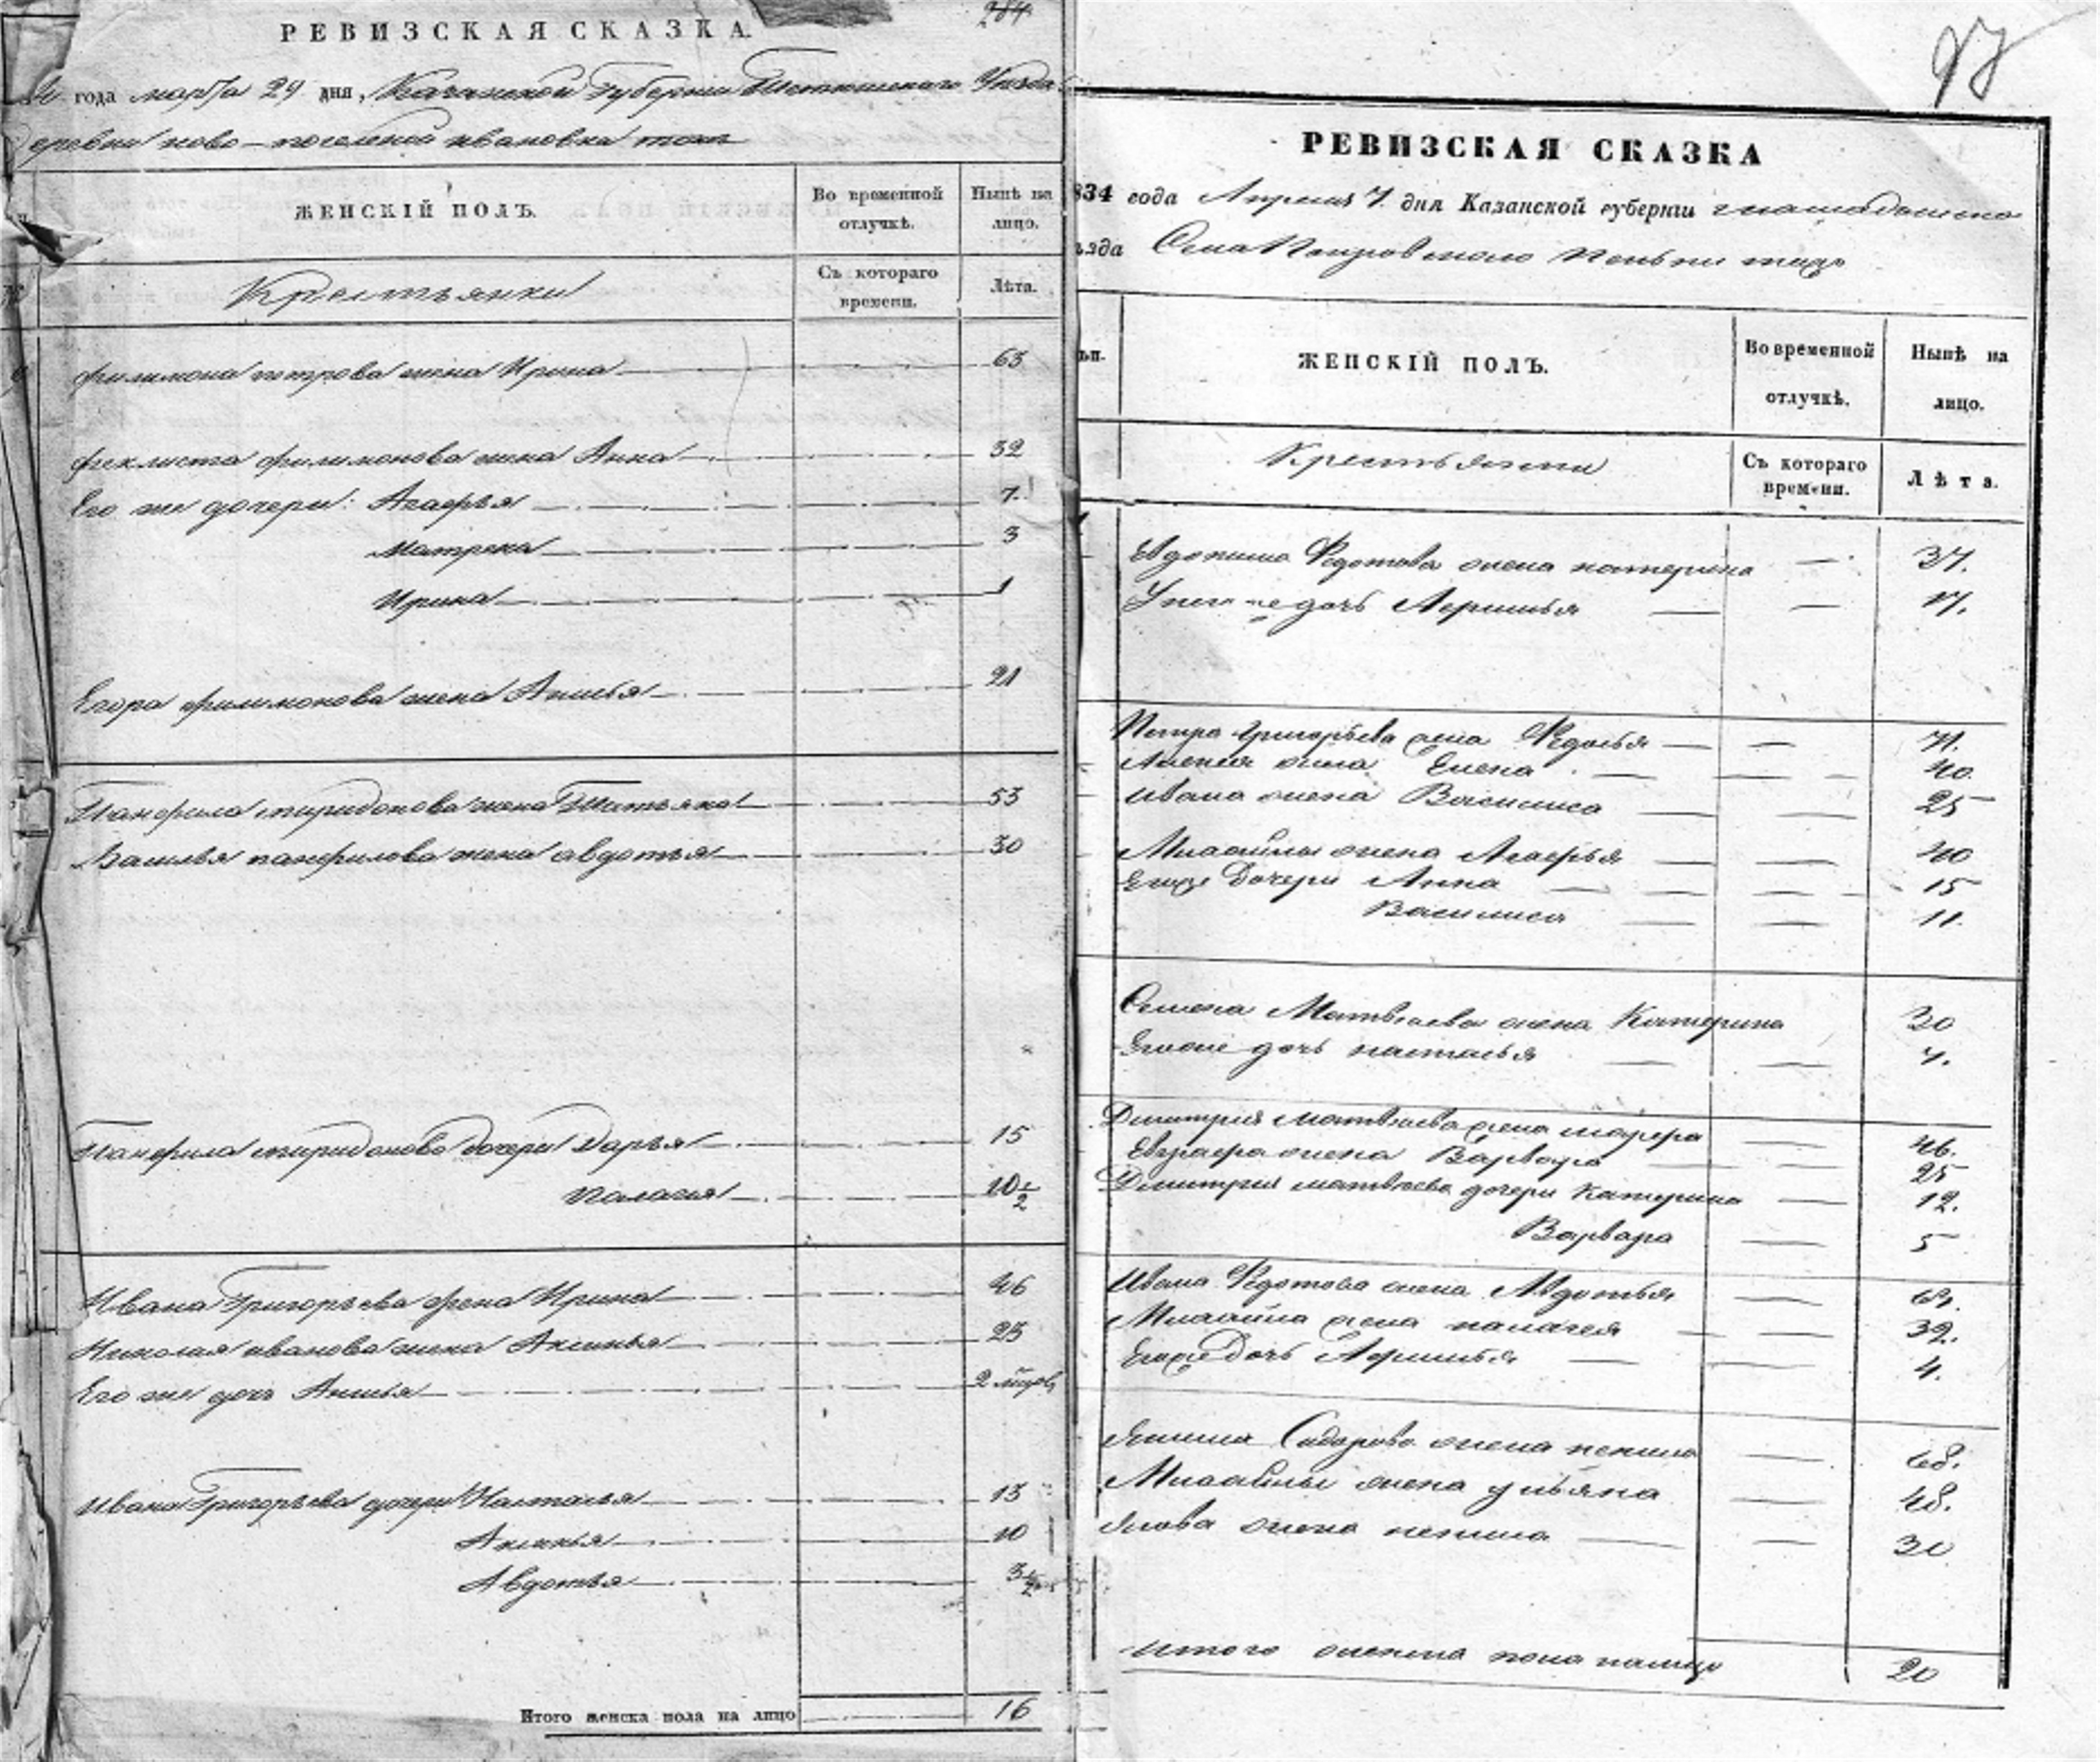 284
РЕВИЗСКАЯ СКАЗКА.
года марта 29 дня, Казанской Губернии Тетюшского Уезда
деревни ново-поселеной ивановка тожъ
ЖЕНСКІЙ ПОЛЪ.
Во временной отлучкѣ.
Нынѣ на лицо.
Крестьянки
Съ котораго времени.
Лѣта.
филимона петрова жена Ирина 63
феклиста филимонова жена Анна 32
Его же дочери: Агафья 7
Матрена 3
Ирина 1
Егора филимонова жена Акилья 21
Панфила спиридонова жена Татьяна 53
Василья панфилова жена авдотья 30
Панфила спиридонова дочери Дарья 15
палагея 10 1/2
Ивана Григорьева жена Ирина 46
Николая иванова жена Аксинья 25
Его же дочь Акилья 2
Ивана Григорьева дочери Настасья 13
Аксинья 10
Авдотья 3 1/2
Итого женска пола на лицо 16
97
РЕВИЗСКАЯ СКАЗКА
834 года Апреля 7. дня Казанской губерніи
ѣзда Села Покровскаго
ЖЕНСКІЙ ПОЛЪ.
Во временной отлучкѣ.
Нынѣ на лицо.
Крестьянки
Съ котораго времени.
Лѣта.
Евдокима Федотова жена катерина 37.
дочь Афимья 17.
Петра Григорьева жена Федосья 71.
Алексея жена Елена 40.
Ивана жена Василиса 25
Михайлы жена Агафья 40
Егоже дочери Анна 15
Василиса 11.
Семена Матвеева жена Катерина 30
Егоже дочь настасья 4.
Дмитрия матвеева жена марфа 46.
Евграфа жена Варвара 25
Дмитрия матвеева дочери катерина 12.
Варвара 5
Ивана Федотова жена Авдотья 61.
Михайла жена палагея 39.
Егоже дочь Афимья 4.
Якима Сидорова жена 68.
Михайлы жена ульяна 48.
Якова жена 30
итого женска пола налицо 20